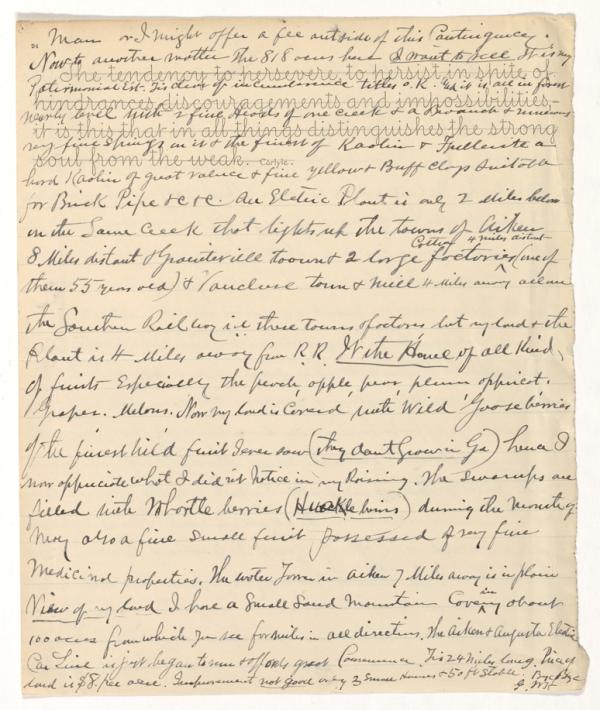 Man or I might offer a fee outside of this Contingency.
Now to another matter The 818 acres here I want to sell It is my
The tendency to persevere, to persist in spite of
Patrimonial Est. Tis clear of incumberance titles O.K. & it is all in forest
hindrances, discouragements and impossibilities,—
nearly level with 2 fine Heads of one Creek & a Branch & numerous
it is this that in all things distinguishes the strong
very fine Springs on it & the finest of Kaolin &
soul from the weak. Carlyle.
hard Kaolin of great value & fine yellow & Buff Clays Suitable
for Brick Pipe &c &c. An Electric Plant is only 2 Miles below
on the Same Creek that lights up the towns of Aiken
8 Miles distant & Graniteville town & 2 large Cotton factories 4 miles distant (one of
them 55 years old) & Vaucluse town & mill 4 Miles away all on
the Southern Rail Way i.e. these towns & factores but my land & the
Plant is 4 Miles away from R.R. It the Home of all Kinds
of fruits Especially the peach, apple, pear, plum appricot.
Grapes. Melons. Now my land is Covered with Wild Gooseberries
of the finest wild fruit I ever saw (they dont Grow in Ga) hence I
now appreciate what I did not Notice in my Raising. The swamps are
filled with Whortle berries (Huckleberries) during the Month of
May also a fine Small fruit possessed of very fine
Medicinal properties. The water Tower in Aiken 7 Miles away is in plain
View of my land I have a Small Sand Mountain Covering about
100 acres from which you see for miles in all directions. The Aiken & Augusta Electric
Car Line is just began to run & affords great Commerce. Tis 24 Miles long. Price of
land is $8. per acre. Improvement not good only 3 Small Houses & 50 ft Stable.